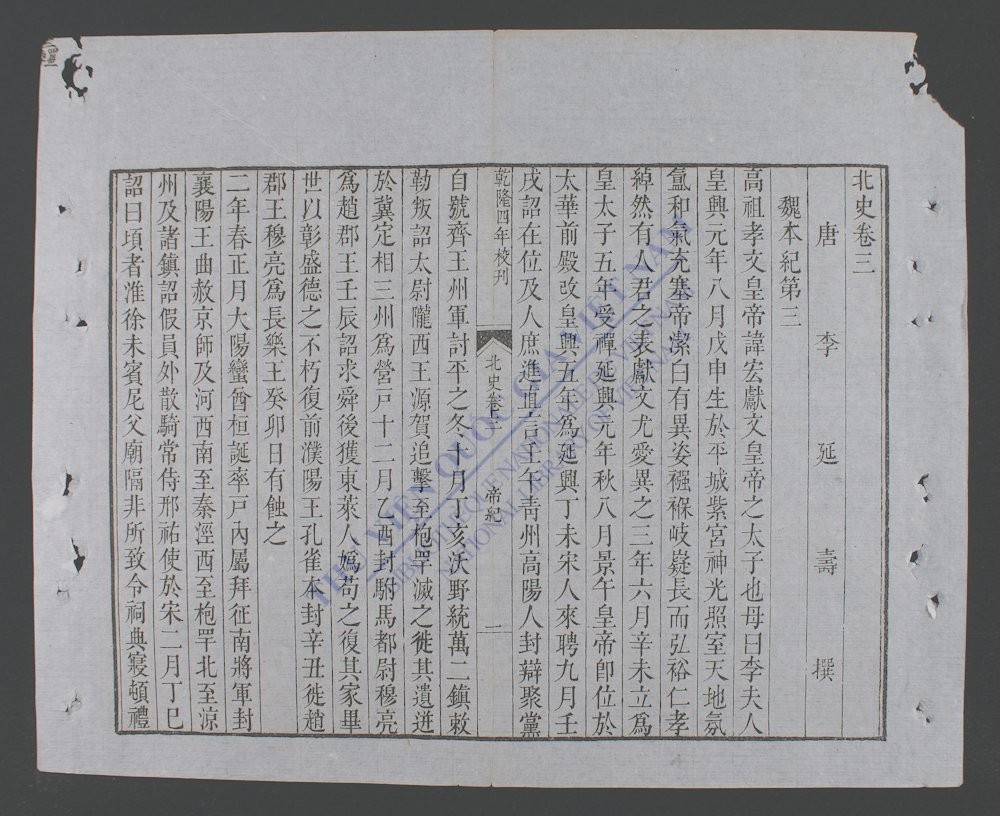 北史卷三
唐 李 延 壽 撰
魏本紀第三
高祖孝文皇帝諱宏獻文皇帝之太子也母曰李夫人
皇興元年八月戊申生於平城紫宮神光照室天地氛
氳和氣充塞帝潔白有異姿襁褓岐嶷長而弘裕仁孝
綽然有人君之表獻文尤愛異之三年六月辛未立為
皇太子五年受禪延興元年秋八月景午皇帝卽位於
太華前殿改皇興五年為延興丁未宋人來聘九月壬
戌詔在位及人庶進直言壬午青州高陽人封辯聚黨
乾隆四年校刊
北史卷三 帝紀 一
自號齊王州軍討平之冬十月丁亥沃野統萬二鎮敕
勒叛詔太尉隴西王源賀追擊至枹罕滅之徙其遺迸
於冀定相三州為營戸十二月乙酉封駙馬都尉穆亮
為趙郡王壬辰詔求舜後獲東萊人嬀苟之復其家畢
世以彰盛德之不朽復前濮陽王孔雀本封辛丑徙趙
郡王穆亮為長樂王癸卯日有蝕之
二年春正月大陽蠻酋桓誕率戸內屬拜征南將軍封
襄陽王曲赦京師及河西南至秦涇西至枹罕北至涼
州及諸鎮詔假員外散騎常侍邢祐使於宋二月丁巳
詔曰頃者淮徐未賓尼父廟隔非所致令祠典寢頓禮
THƯ VIỆN QUỐC GIA VIỆT NAM
BIBLIOTHEQUE NATIONALE DU VIETNAM
NATIONAL LIBRARY OF VIETNAM